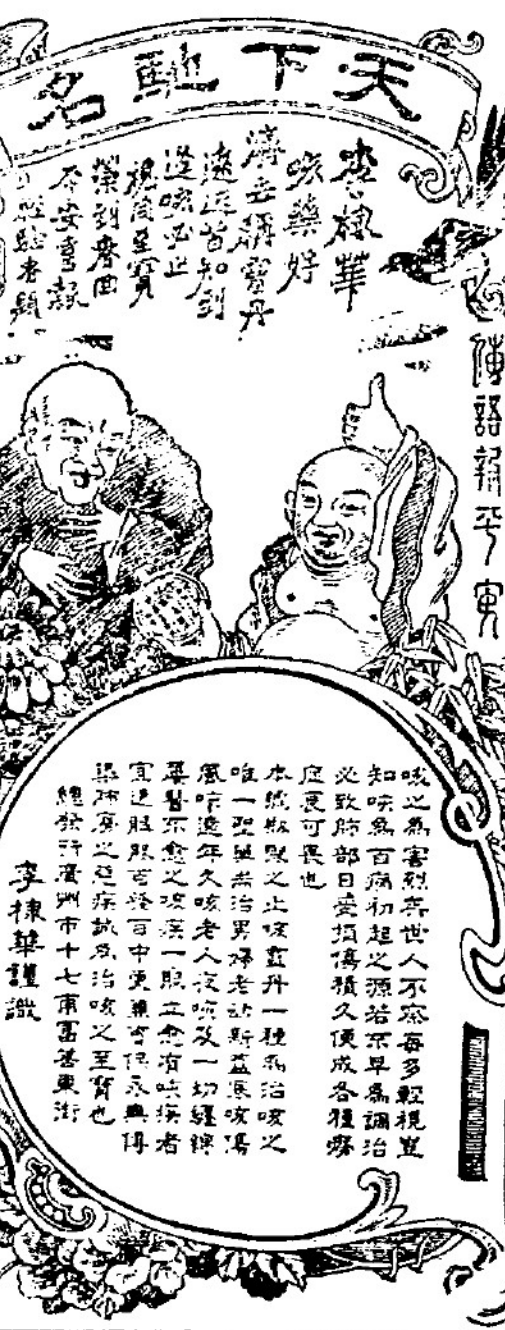 天下馳名
李棣華
咳藥好
濟世稱寶丹
遠近皆知到
咳必止
視為至寶
藥到春回
平安喜報
驗者題
傳語報平安
咳之為害烈矣世人不察每多輕視豈
知咳為百病初起之源若不早為調治
必致肺部日受損傷積久便成各種癆
症良可畏也
本號製之止咳靈丹一種為治咳之
唯一聖藥治男婦老幼新寒咳傷
風咳遠年久咳老人夜咳及一切經
藥醫不愈之咳疾一服立愈有咳疾者
宜速服服百發百中更兼可保永無傳
染肺癆之惡疾誠為治咳之至寶也
總發行廣州市十七甫富善東街
李棣華謹識